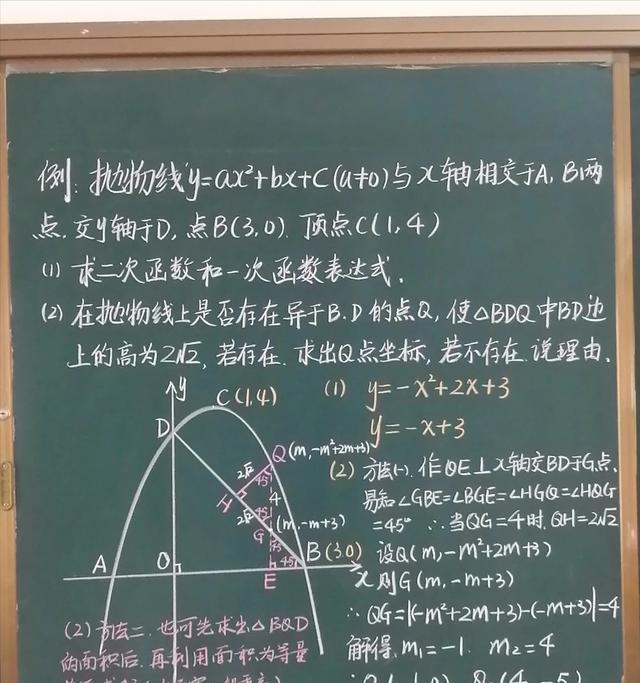 例: 抛物线y=ax²+bx+C(a≠0)与x轴相交于A,B两
点.交y轴于D,点B(3,0).顶点C(1,4)
(1) 求二次函数和一次函数表达式.
(2) 在抛物线上是否存在异于B.D的点Q,使△BDQ中BD边
上的高为2√2,若存在.求出Q点坐标,若不存在.说理由.
y
C(1,4)
D
Q(m,-m²+2m+3)
2√2
45
H
4
2√2
45
G
(m,-m+3)
45
45
A
O
E
B(3,0)
x
(1) y=-x²+2x+3
y=-x+3
(2) 方法(一).作QE⊥x轴交BD于G点.
易知∠GBE=∠BGE=∠HGQ=∠HQG
=45° ∴当QG=4时.QH=2√2
设Q(m,-m²+2m+3)
则G(m,-m+3)
∴QG=|(-m²+2m+3)-(-m+3)|=4
解得.m₁=-1. m₂=4
(2) 方法二.也可先求出△BQD
的面积后.再利用面积为等量